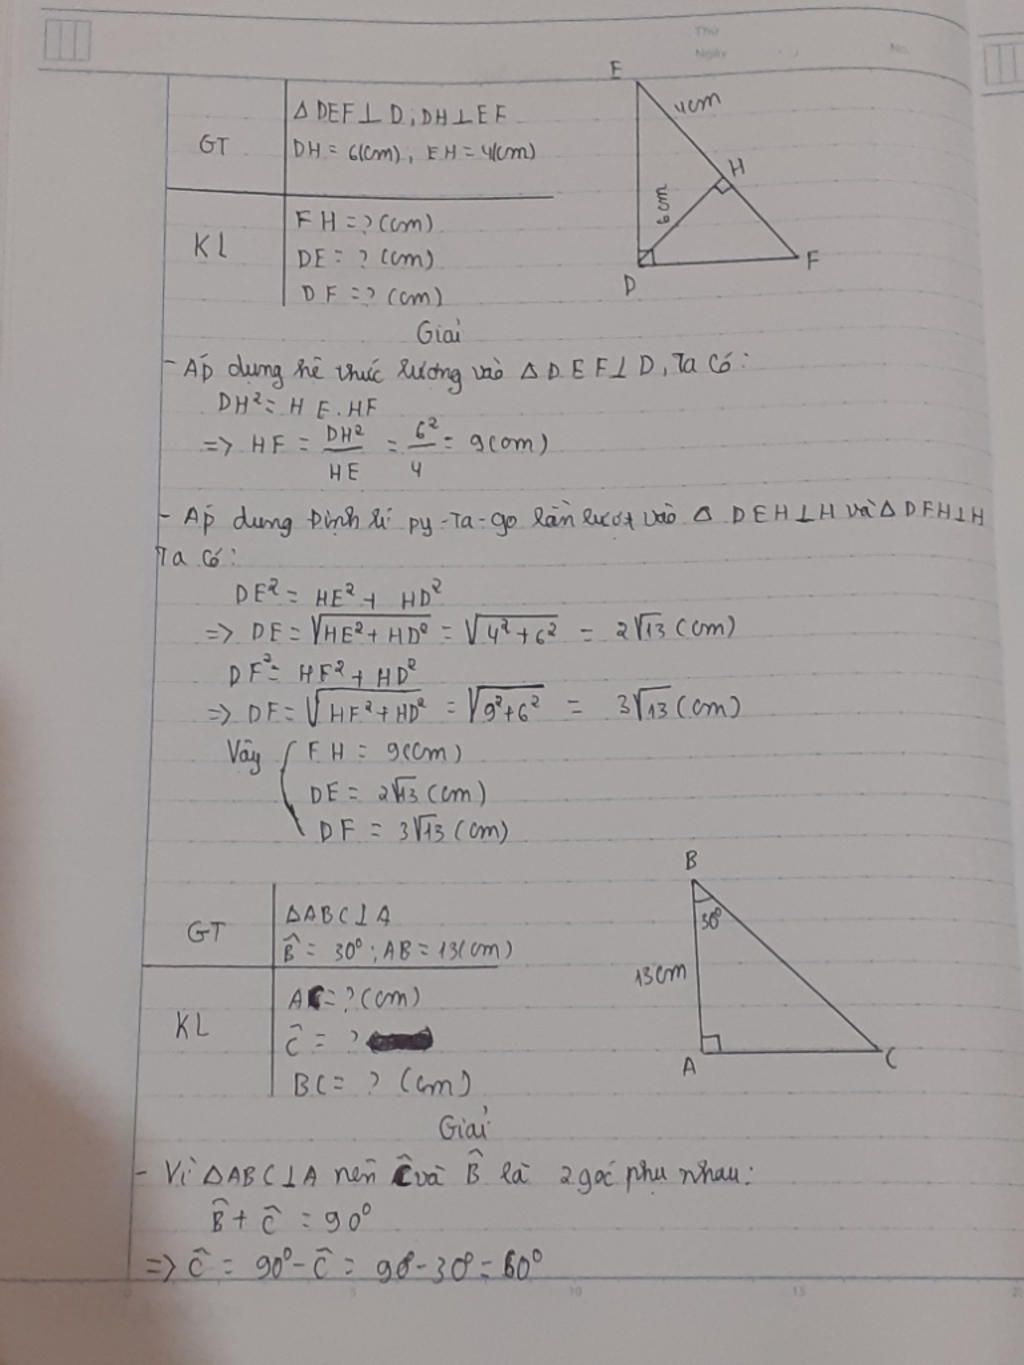 Thứ
Ngày
No.
GT
Δ DEF⊥D; DH⊥EF
DH = 6(cm), EH = 4(cm)
KL
FH = ? (cm)
DE = ? (cm)
DF = ? (cm)
E
4cm
H
6cm
D
F
Giải
- Áp dụng hệ thức lượng vào Δ DEF⊥D, Ta có:
DH² = HE.HF
=> HF = DH²/HE = 6²/4 = 9(cm)
- Áp dụng Định lí py-Ta-go lần lượt vào Δ DEH⊥H và Δ DFH⊥H
Ta có:
DE² = HE² + HD²
=> DE = √(HE² + HD²) = √(4² + 6²) = 2√13 (cm)
DF² = HF² + HD²
=> DF = √(HF² + HD²) = √(9² + 6²) = 3√13 (cm)
Vậy { FH = 9(cm)
DE = 2√13 (cm)
DF = 3√13 (cm)
GT
ΔABC⊥A
B̂ = 30°; AB = 13(cm)
KL
AC = ? (cm)
Ĉ = ?
BC = ? (cm)
B
30°
13cm
A
C
Giải
- Vì ΔABC⊥A nên Ĉ và B̂ là 2 góc phụ nhau:
B̂ + Ĉ = 90°
=> Ĉ = 90° - Ĉ = 90 - 30° = 60°
0
5
10
15
20